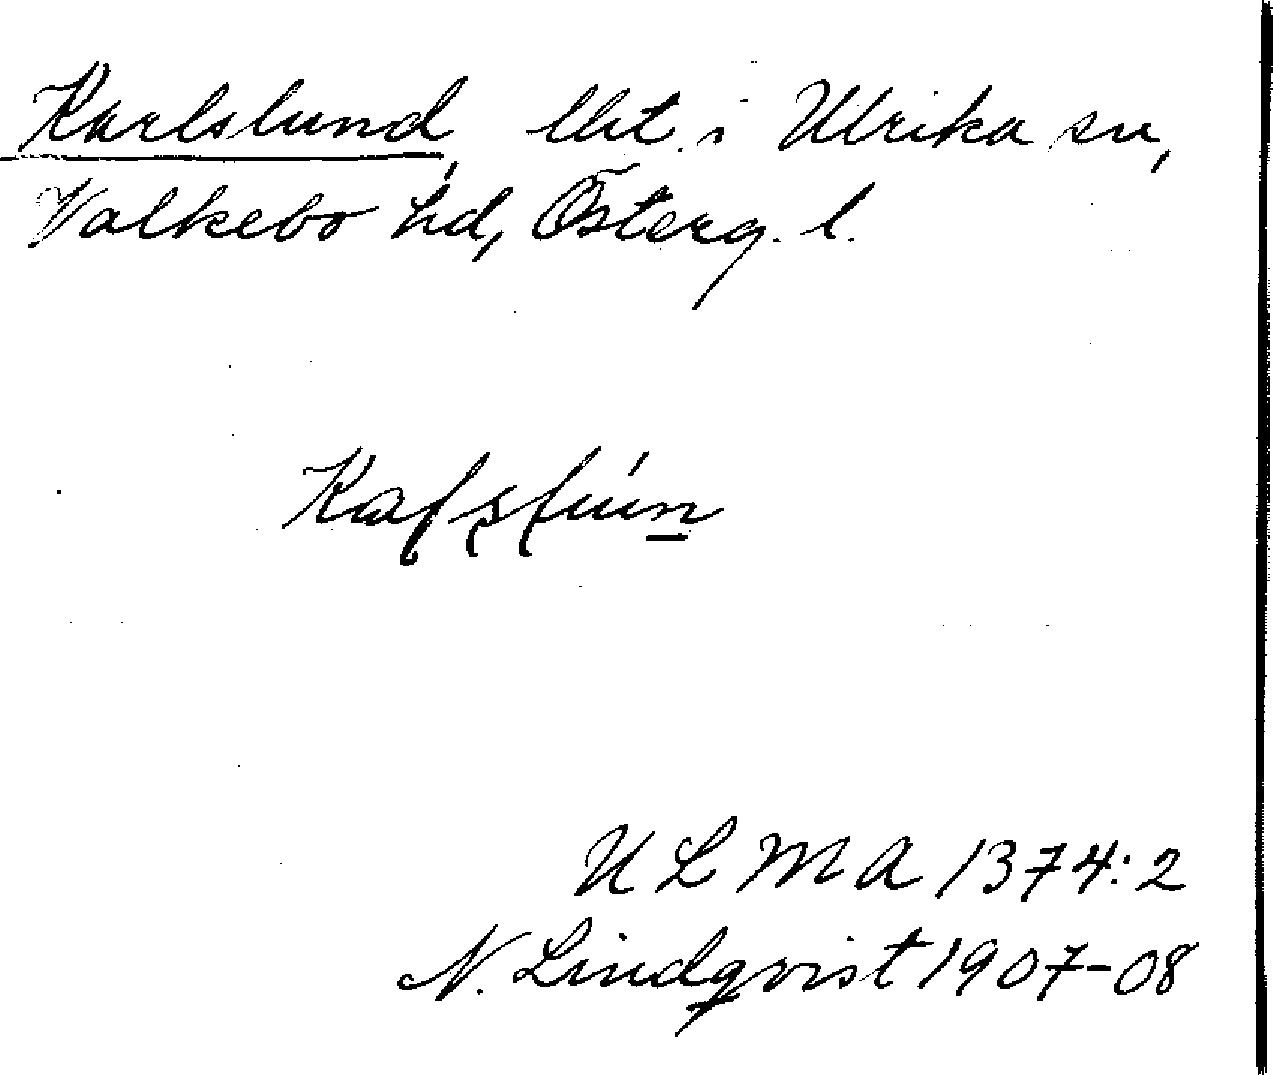 Karlslund, lht. i Ulrika sn,
Valkebo hd, Österg. l.
ULMA 1374:2
N. Lindqvist 1907-08